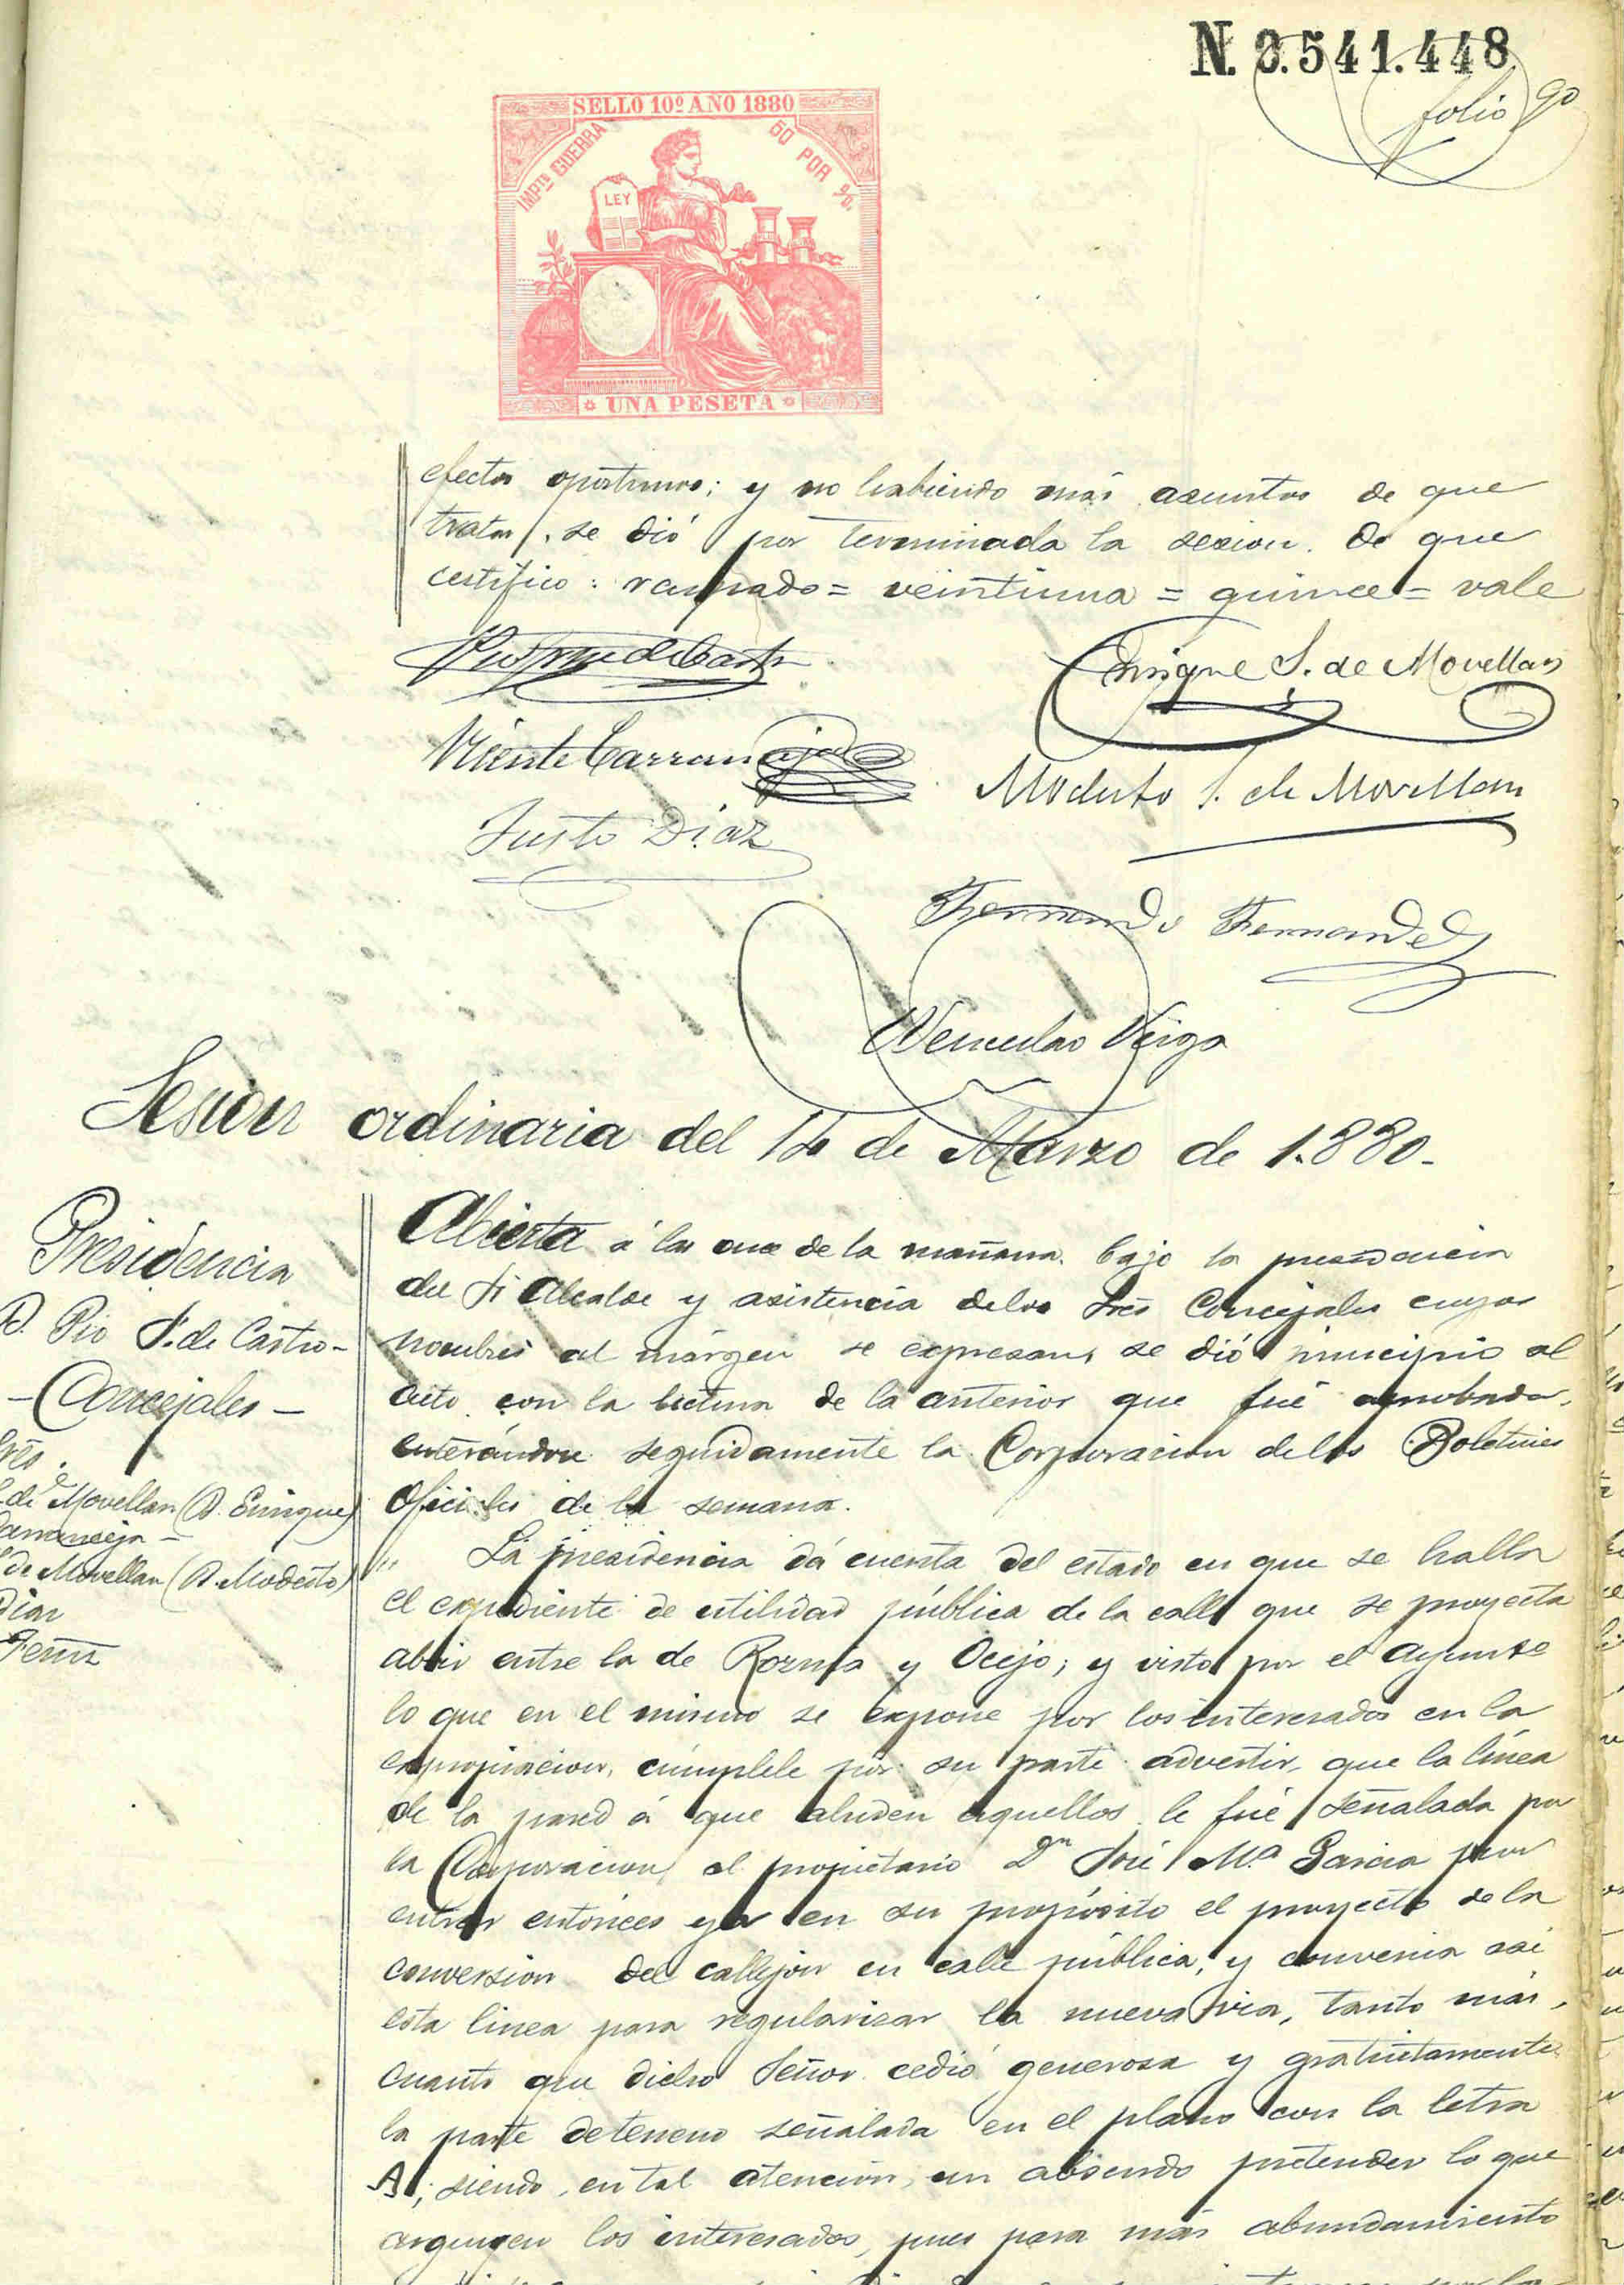 N. 2.541.448
folio 90
SELLO 10º AÑO 1880
IMPTO GUERRA
50 POR %.
LEY
UNA PESETA
efectos oportunos; y no habiendo más asuntos de que
tratar, se dió por terminada la sesion. De que
certifico: raspado = veintiuna = quince = vale
Enrique S. de Movellan
Vicente Carranceja
Modesto S. de Movellan
Justo Diaz
Fernando Fernandez
Wenceslao Veiga
Sesion ordinaria del 14 de Marzo de 1.880-
Presidencia
D. Pio S. de Castro-
-Concejales-
S. de Movellan (D. Enrique)
Carranceja-
S. de Movellan (D. Modesto)
Diaz
Fernz
Abierta á las once de la mañana bajo la presidencia
del Sr Alcalde y asistencia de los Sres Concejales cuyos
nombres al márgen se expresan, se dió principio al
acto con la lectura de la anterior que fué aprobada,
enterándose seguidamente la Corporacion de los Boletines
Oficiales de la semana.
" La presidencia dá cuenta del estado en que se halla
el expediente de utilidad pública de la calle que se proyecta
abrir entre la de y Ocejo; y visto por el Ayuntº
lo que en el mismo se expone por los interesados en la
expropiacion, cúmplele por su parte advertir, que la línea
de la pared á que aluden aquellos le fué señalada por
la Corporacion al propietario Dn José Mª Garcia por
entrar entónces ya en su propósito el proyecto de la
conversion del callejon en calle pública, y convenia así
esta linea para regularizar la nueva via, tanto más,
cuanto que dicho Señor cedió generosa y gratuitamente
la parte de terreno señalada en el plano con la letra
A; siendo, en tal atencion, un absurdo pretender lo que
arguyen los interesados, pues para más abundamiento